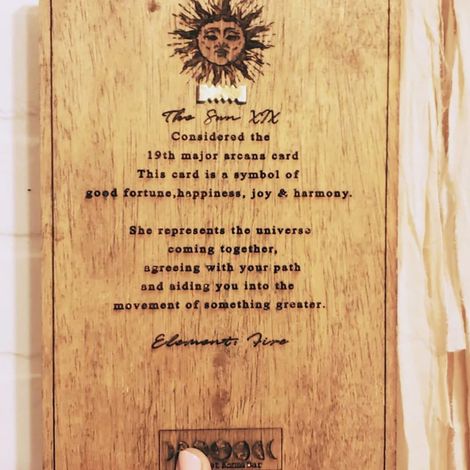 The Sun XIX
Considered the
19th major arcana card
This card is a symbol of
good fortune,happiness, joy & harmony.
She represents the universe
coming together,
agreeing with your path
and aiding you into the
movement of something greater.
Element: Fire